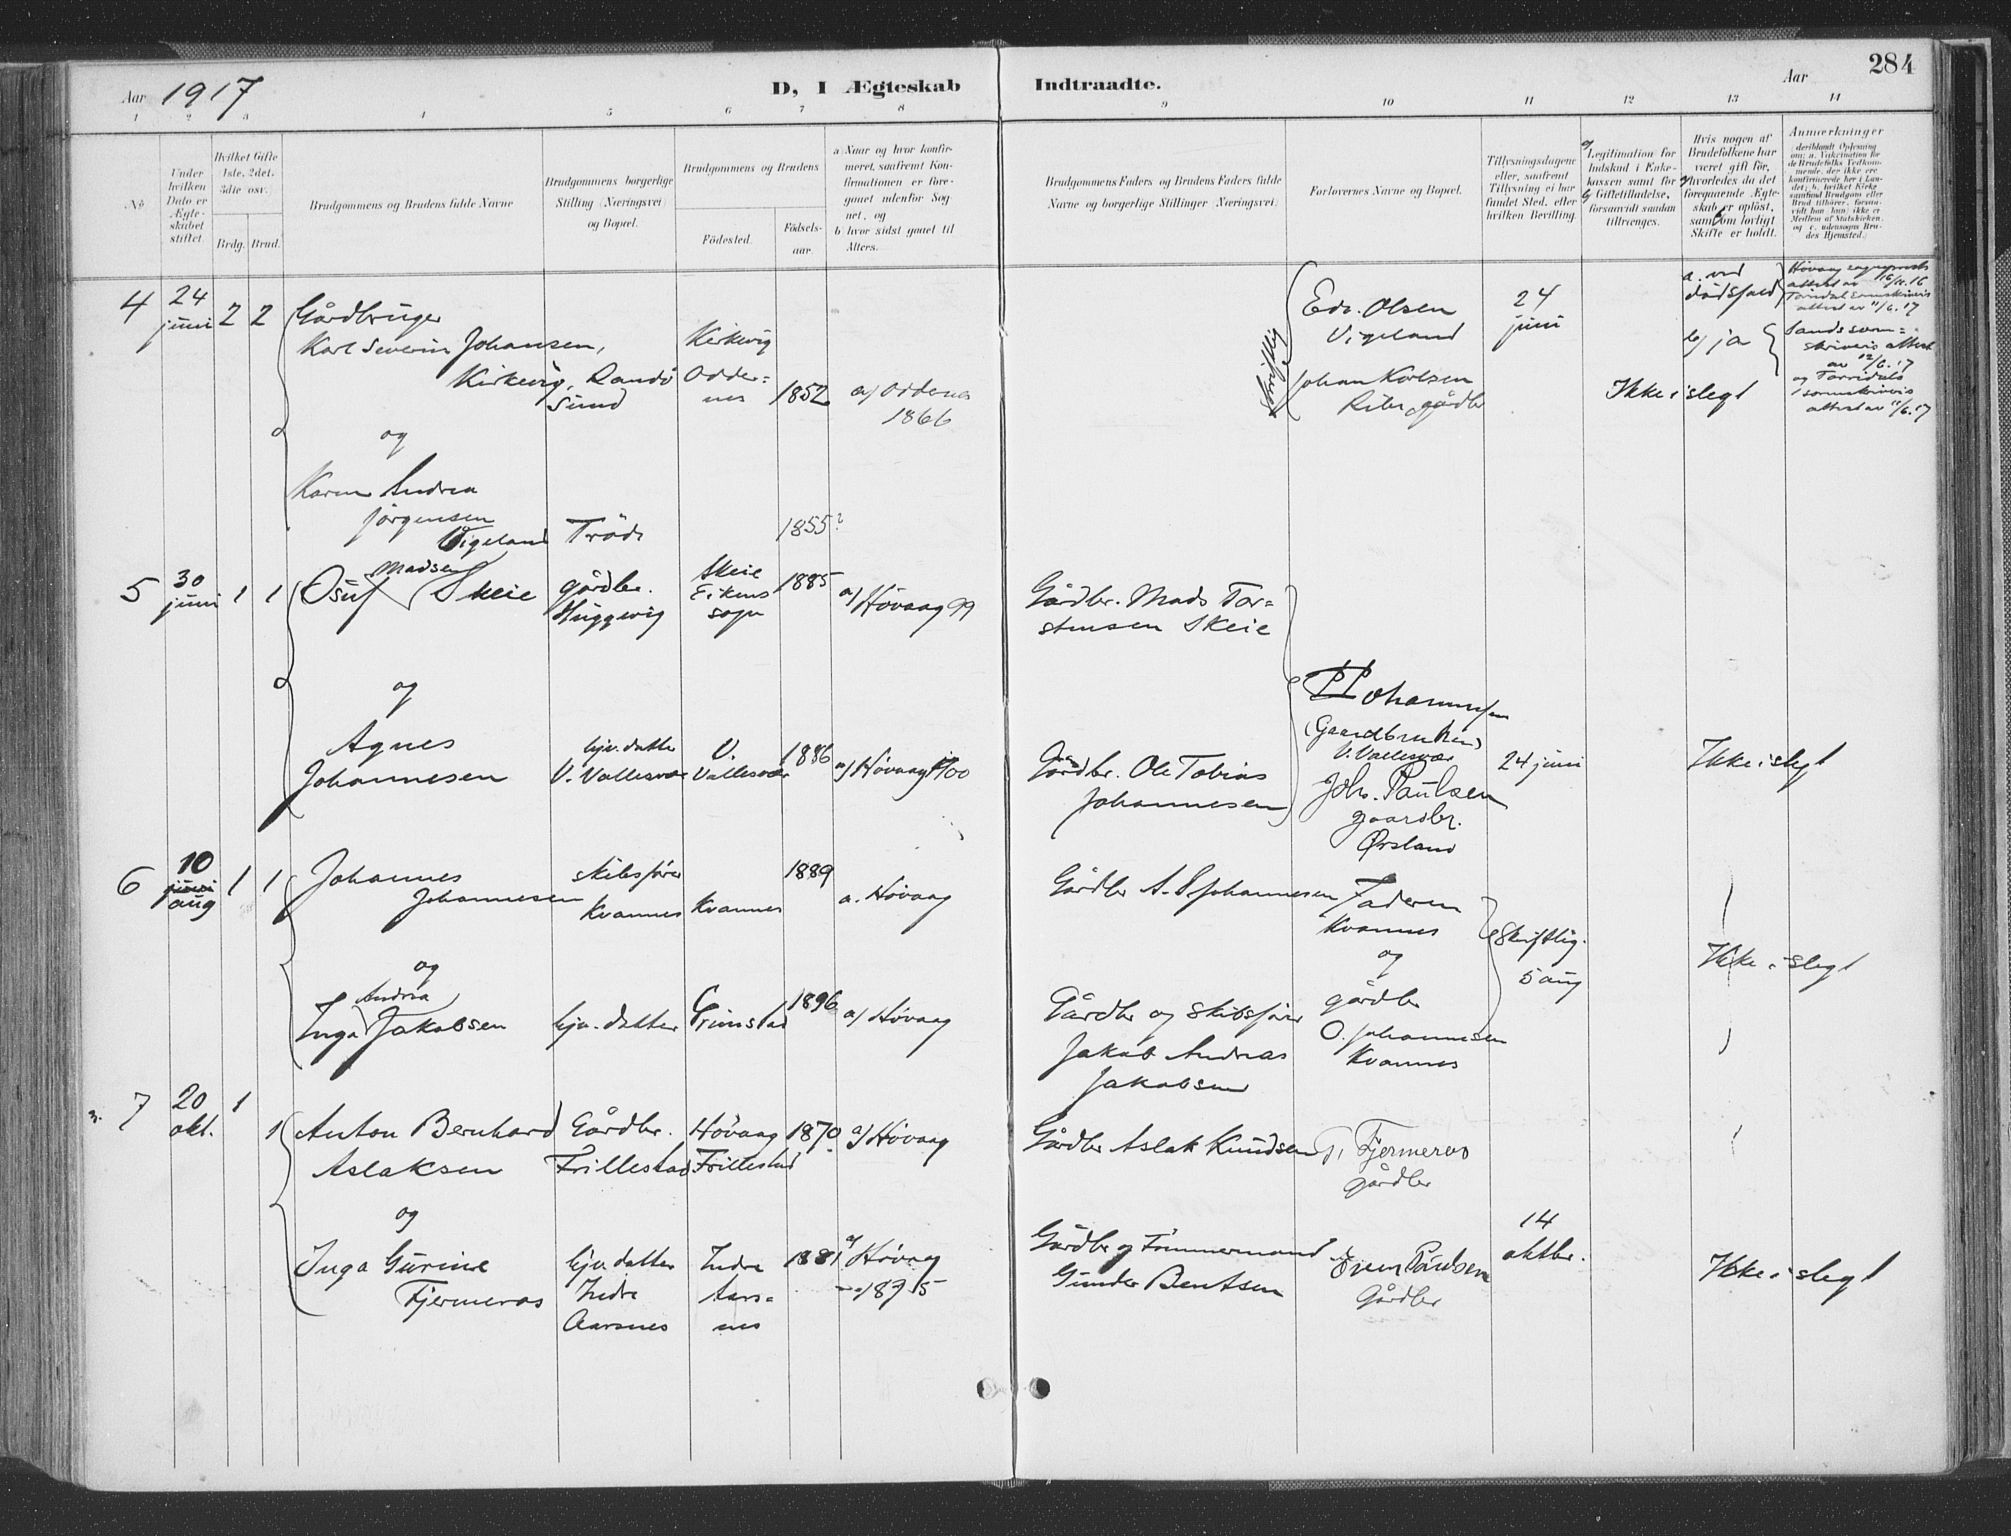 Aar 1917
D, I Ægteskab Indtraadte.
Aar
284
1 2 3 4 5 6 7 8 9 10 11 12 13 14
No
Under hvilken Dato er Ægteskabet stiftet.
Hvilket Gifte 1ste, 2det, 3die osv.
Brdg. Brud.
Brudgommens og Brudens fulde Navne
Brudgommens borgerlige Stilling (Næringsvei) og Bopæl.
Brudgommens og Brudens
Fødested.
Fødselsaar.
a Naar og hvor konfirmeret, saafremt Konfirmationen er foregaaet udenfor Sognet, og
b hvor sidst gaaet til Alters.
Brudgommens Faders og Brudens Faders fulde Navne og borgerlige Stillinger (Næringsvei)
Forlovernes Navne og Bopæl.
Tillysningsdagene eller, saafremt Tillysning ei har fundet Sted, efter hvilken Bevilling.
Legitimation for Indskud i Enkekassen samt for Giftetilladelse, forsaavidt saadan tiltrænges.
Hvis nogen af Brudefolkene har været gift før, hvorledes da det foregaaende Ægteskab er opløst, samt om lovligt Skifte er holdt.
Anmærkninger
4
24 juni
2 2
Gårdbruger
Karl Severin Johansen,
Kirkevig, Randösund
Kirkevig
Oddernes
1852
a/ Oddernes
1866
skriftlig
Edv. Olsen
Vigeland
Johan Karlsen
gårdbr
24 juni
Ikke i slegt
a. ved dødsfald
b/ ja
og
Karen Andrea
Jørgensen
Vigeland
1855?
5
30 juni
1 1
Osuf Madsen Skeie
gårdbr.
Skeie
Eikens
sogn
1885
a/ Høvaag 99
Gårdbr. Mads Torstensen Skeie
og
Agnes
Johannesen
hjv. datter
V. Vallesvær
V.
Vallesvær
1886
a/ Høvaag 1900
Gårdbr. Ole Tobias
Johannesen
Johannessen
(Gaardbruker)
V. Vallesvær
Joh. Paulsen
gaardbr.
Ørsland
24 juni
Ikke i slegt
6
10
aug
1 1
Johannes
Johannesen
skibsfører
Kvannes
Kvannes
1889
a. Høvaag
Gårdbr A. Johannesen
Faderen
Kvannes
og
gårdbr
O. Johannesen
Kvannes
Skriftlig.
5 aug
Ikke i slegt
og
Inga Andrea Jakobsen
hjv. datter
Grimstad
1896
a/ Høvaag
Gårdbr og skibsfører
Jakob Andreas
Jakobsen
7
20
okt.
1 1
Anton Bernhard
Aslaksen
Gårdbr.
Frillestad
Høvaag
Frillestad
1870
a/ Høvaag
Gårdbr Aslak Knudsen
Fjermeros
gårdbr
og
Inga Gurine
Fjermeros
hjv datter
Indre
Aarsnes
Indre
Aarsnes
1881
a/ Høvaag
1895
Gårdbr og Tømmermand
Gunder Bentsen
Paulsen
Gårdbr
14
oktbr.
Ikke i slegt